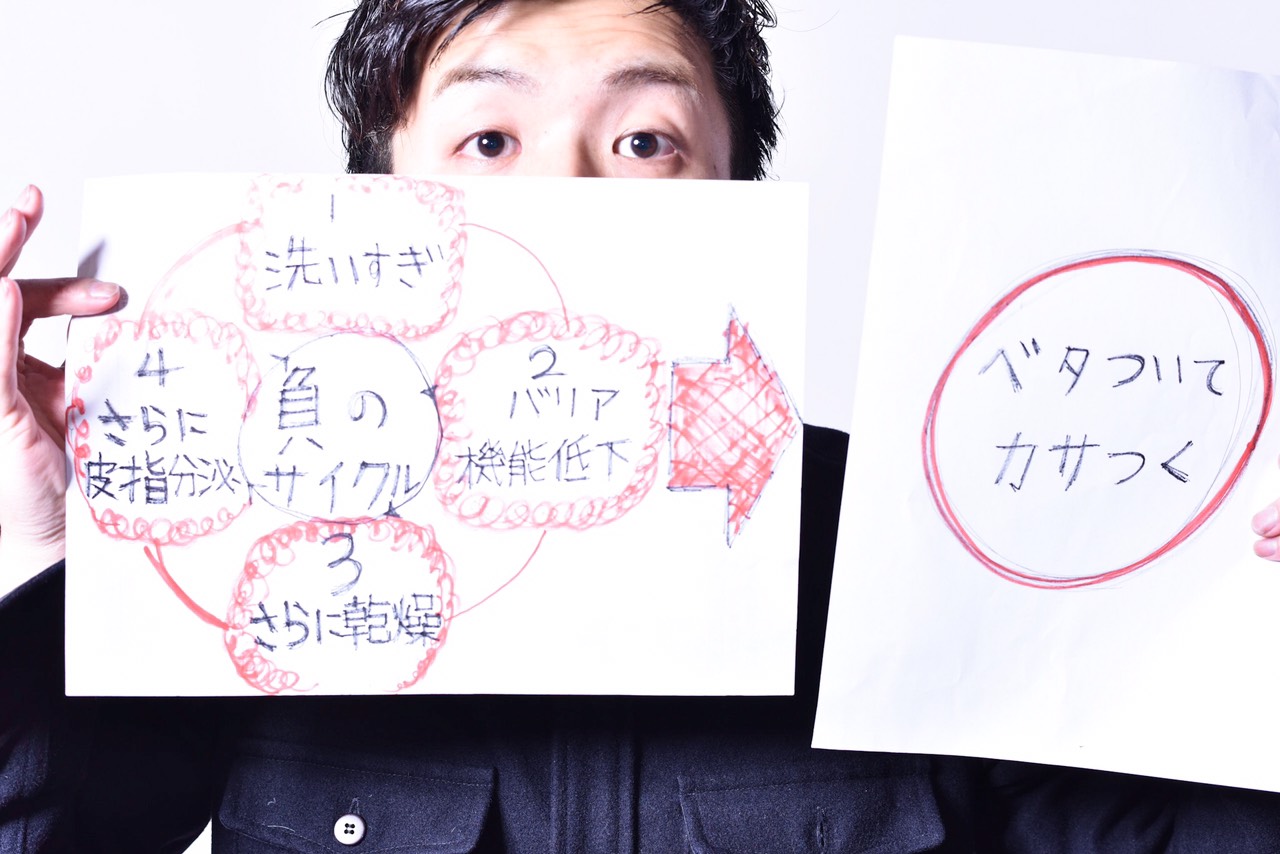 1
洗いすぎ
2
バリア
機能低下
3
さらに乾燥
4
さらに
皮指分泌
負の
サイクル
ベタついて
カサつく